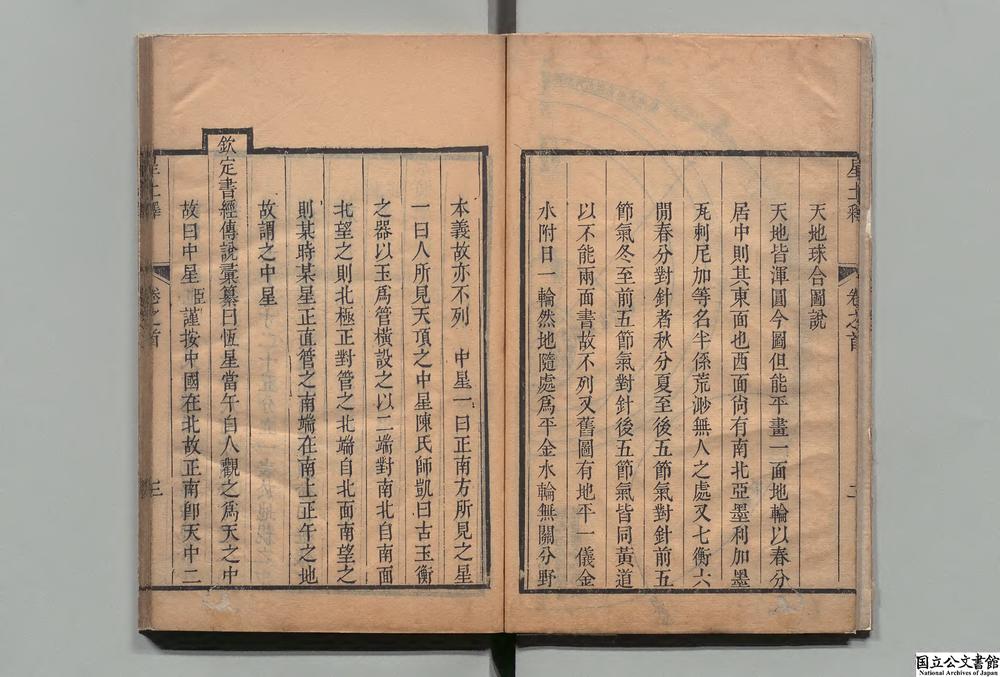 天地球合圖說
天地皆渾圓今圖但能平畫一面地輪以春分
居中則其東面也西面尙有南北亞墨利加墨
瓦剌尼加等名半係荒渺無人之處又七衡六
閒春分對針者秋分夏至後五節氣對針前五
節氣冬至前五節氣對針後五節氣皆同黃道
以不能兩面書故不列又舊圖有地平一儀金
水附日一輪然地隨處爲平金水輪無關分野
卷之首
二
本義故亦不列 中星一曰正南方所見之星
一曰人所見天頂之中星陳氏師凱曰古玉衡
之器以玉爲管橫設之以二端對南北自南面
北望之則北極正對管之北端自北面南望之
則某時某星正直管之南端在南上正午之地
故謂之中星
欽定書經傳說彙纂曰恆星當午自人觀之爲天之中
故曰中星臣謹按中國在北故正南卽天中二
卷之首
三
国立公文書館
National Archives of Japan